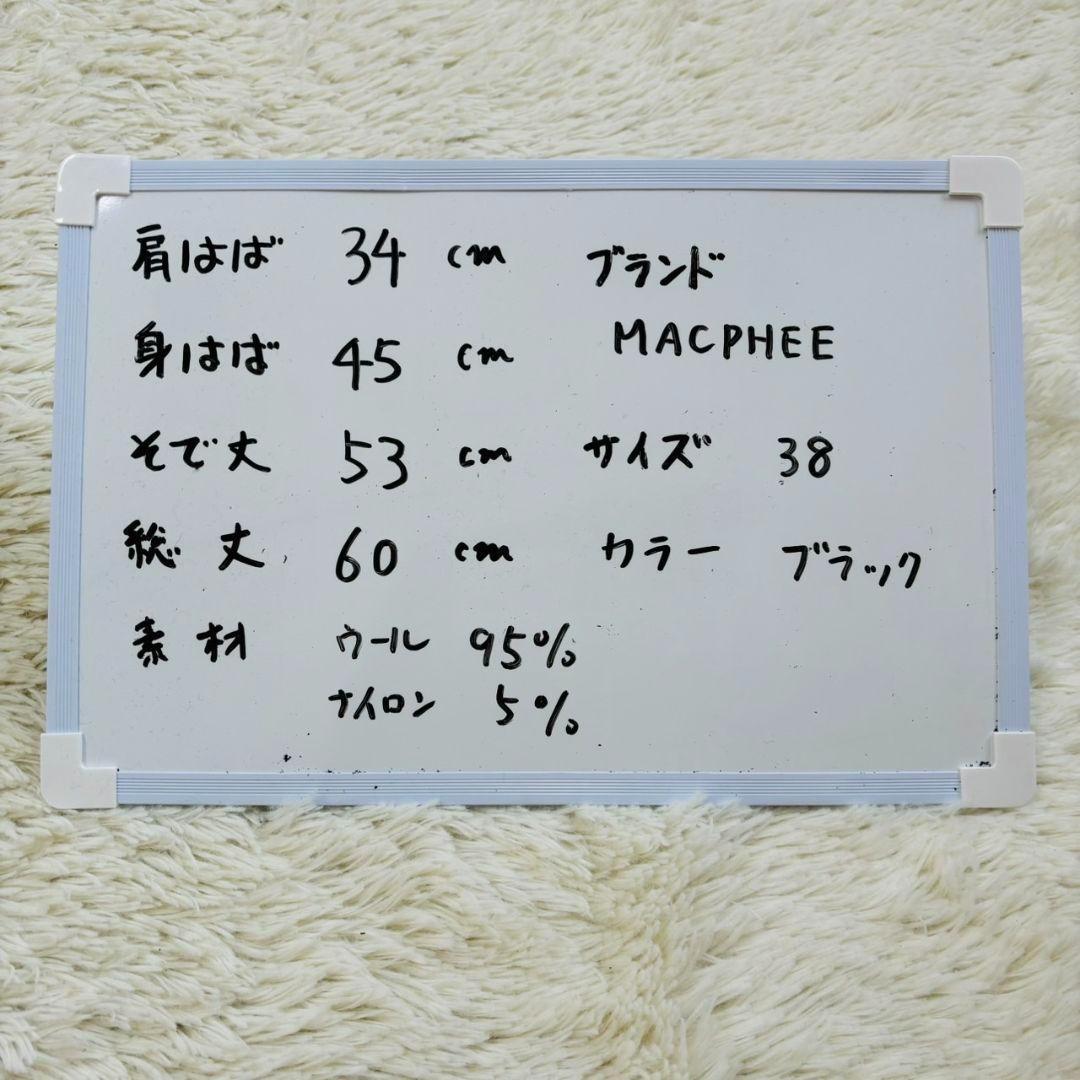 肩はば 34 cm
身はば 45 cm
そで丈 53 cm
総丈 60 cm
素材 ウール 95%
ナイロン 5%
ブランド
MACPHEE
サイズ 38
カラー ブラック